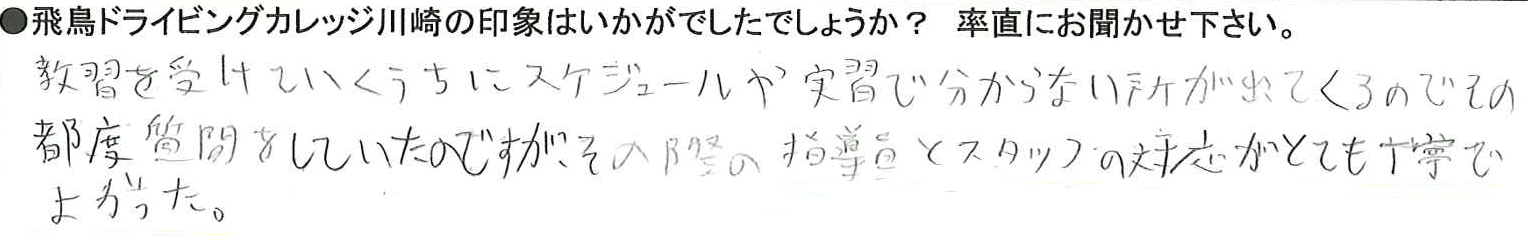 ●飛鳥ドライビングカレッジ川崎の印象はいかがでしたでしょうか？ 率直にお聞かせ下さい。
教習を受けていくうちにスケジュールや実習で分からない所が出てくるのでその
都度質問をしていたのですが、その際の指導員とスタッフの対応がとても丁寧で
よかった。